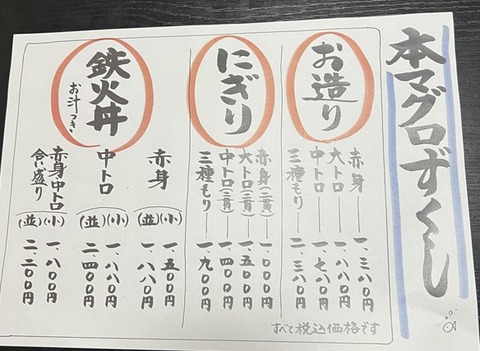 本マグロずくし
お造り
赤身 一、三八〇円
大トロ 一、八八〇円
中トロ 一、七八〇円
三種もり 二、三八〇円
にぎり
赤身(二貫) 一、〇〇〇円
大トロ(二貫) 一、五〇〇円
中トロ(二貫) 一、四〇〇円
三種もり 一、九〇〇円
鉄火丼
お汁つき
赤身
(小) 一、五〇〇円
(並) 一、八〇〇円
中トロ
(小) 一、八八〇円
(並) 二、四〇〇円
赤身中トロ
合い盛り
(小) 一、八〇〇円
(並) 二、二〇〇円
すべて税込価格です